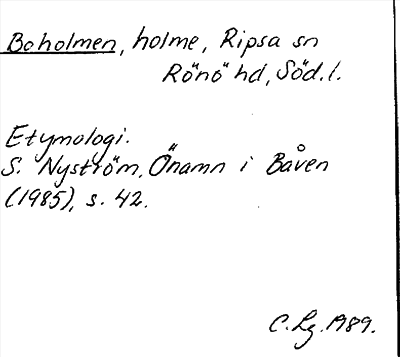 Boholmen, holme, Ripsa sn
Rönö hd, Söd.l.
Etymologi.
S. Nyström, Önamn i Båven
(1985), s. 42.
C.Lg.1989.